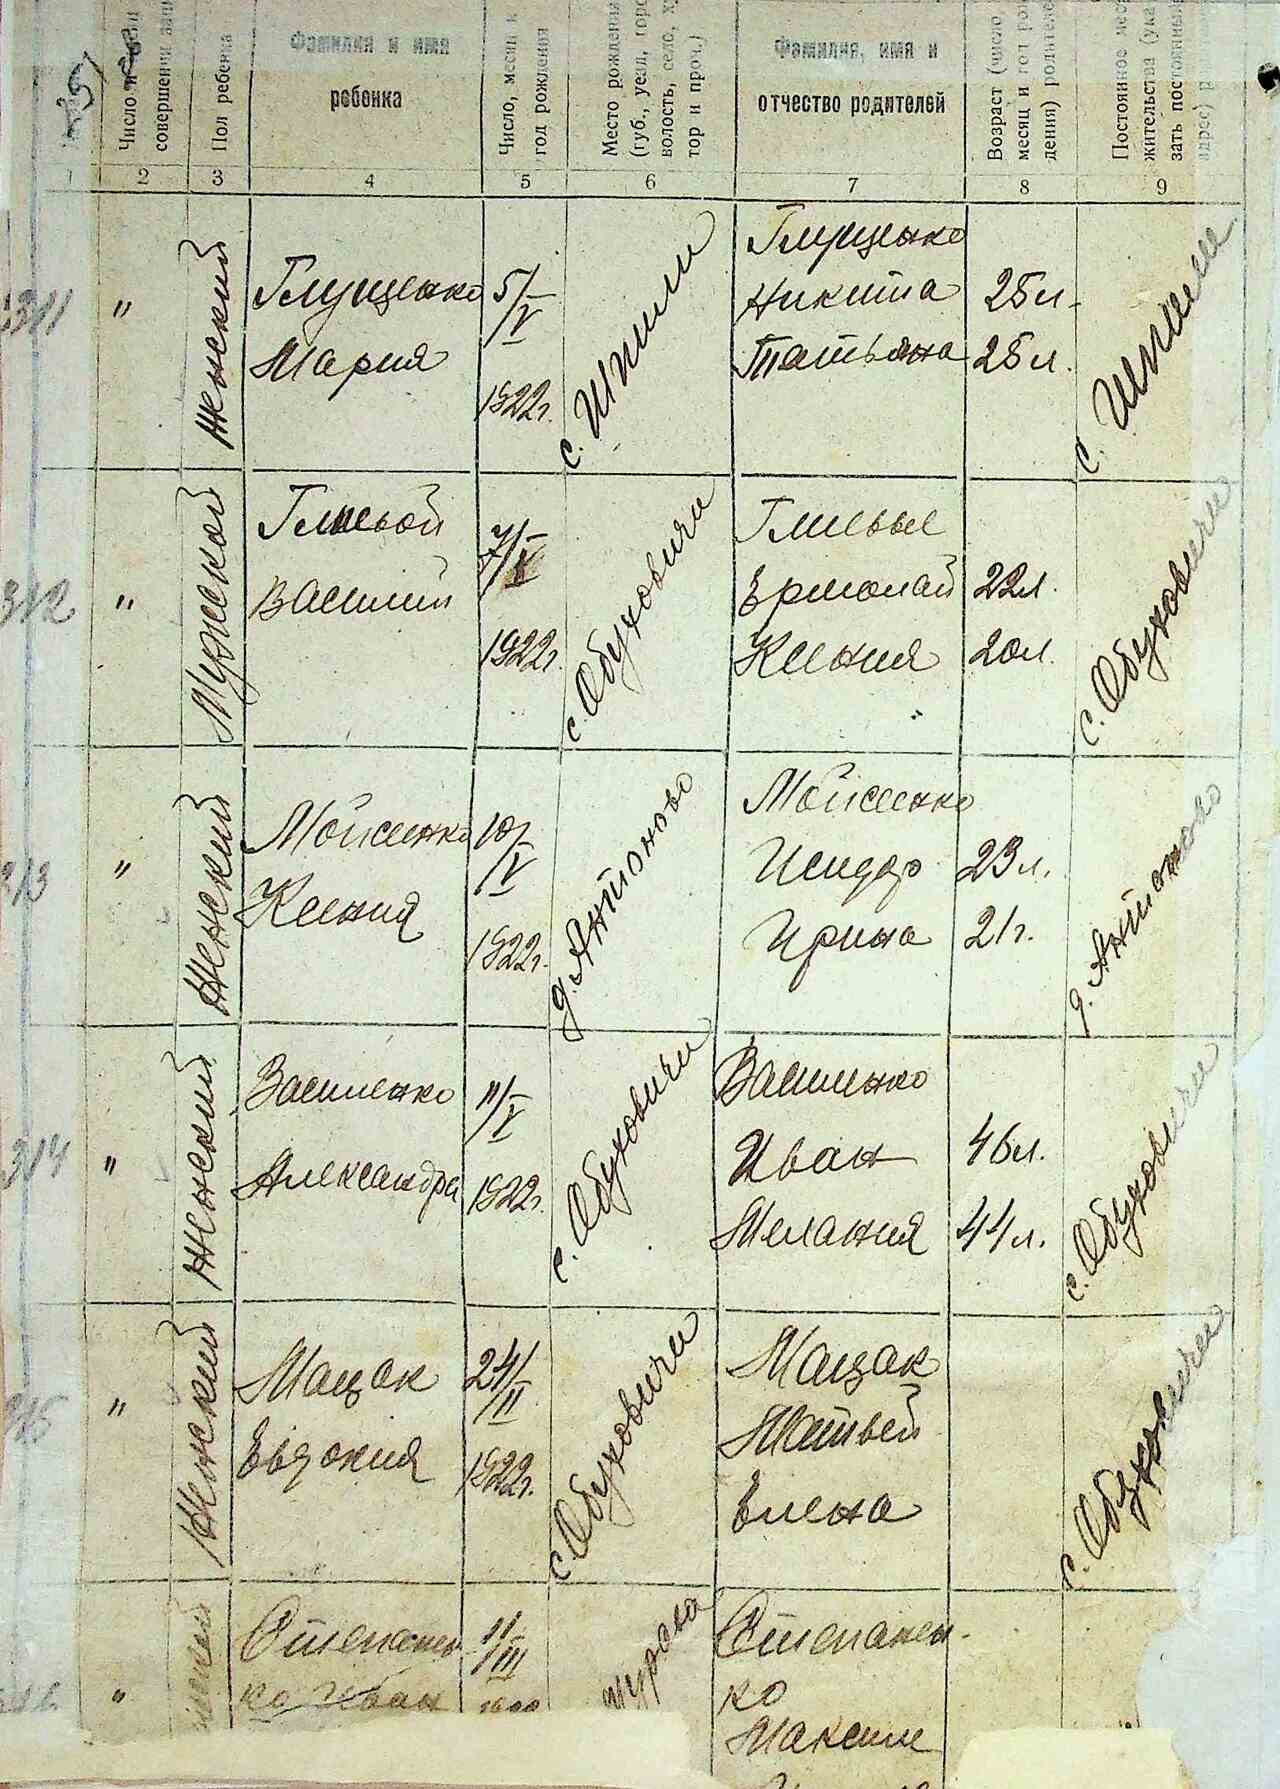 Число и
совершения
Пол ребенка
Фамилия и имя
ребенка
Число, месяц и
год рождения
Место рождения
(губ., уезд, горо
волость, село, ху
тор и проч.)
Фамилия, имя и
отчество родителей
Возраст (число
месяц и год рож
дения) родителе
Постоянное мес
жительства (ука
зать постоянный
адрес)
1 2 3 4 5 6 7 8 9
311
"
Женский
Глущенко
Мария
5/V
1922г.
с. Шпили
Глущенко
Никита
Татьяна
25л.
25л.
с. Шпили
312
"
Мужской
Глиевой
Василий
7/V
1922г.
с. Обуховичи
Глиевые
Ермолай
Ксения
22л.
20л.
с. Обуховичи
313
"
Женский
Мойсеенко
Ксения
10/V
1922г.
д. Антоново
Мойсеенко
Исидор
Ирина
23л.
21г.
д. Антоново
314
"
Женский
Василенко
Александра
11/V
1922г.
с. Обуховичи
Василенко
Иван
Мелания
46л.
44л.
с. Обуховичи
315
"
Женский
Мацак
Евдокия
24/II
1922г.
с. Обуховичи
Мацак
Матвей
Елена
с. Обуховичи
"
Степанен
ко Иван
11/III
Степанен-
ко
Максим